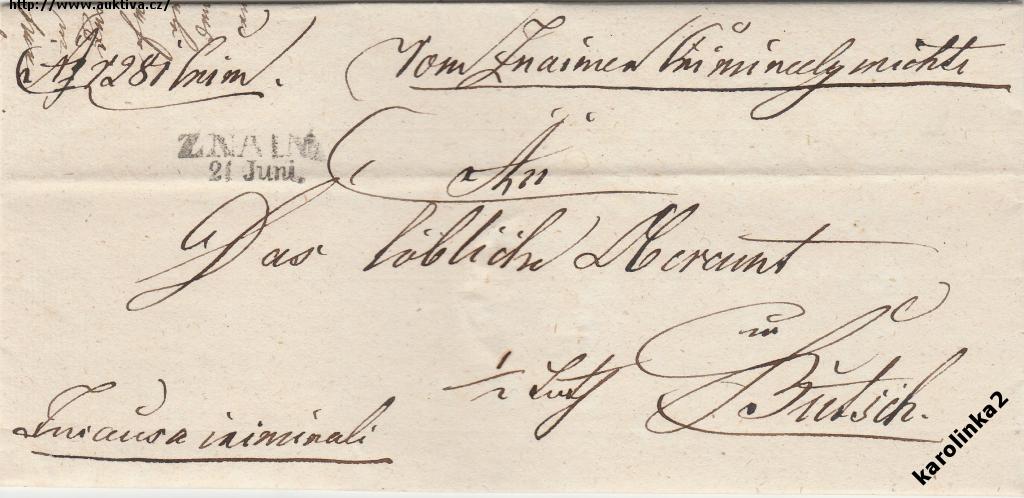 http://www.auktiva.cz/
Nº 7281 crim.
Vom Znaimer Criminalgerichte
ZNAIM
21 Juni.
An
Das löbliche Oberamt
in
1/2 Loth
Butsch.
In causa criminali
karolinka2